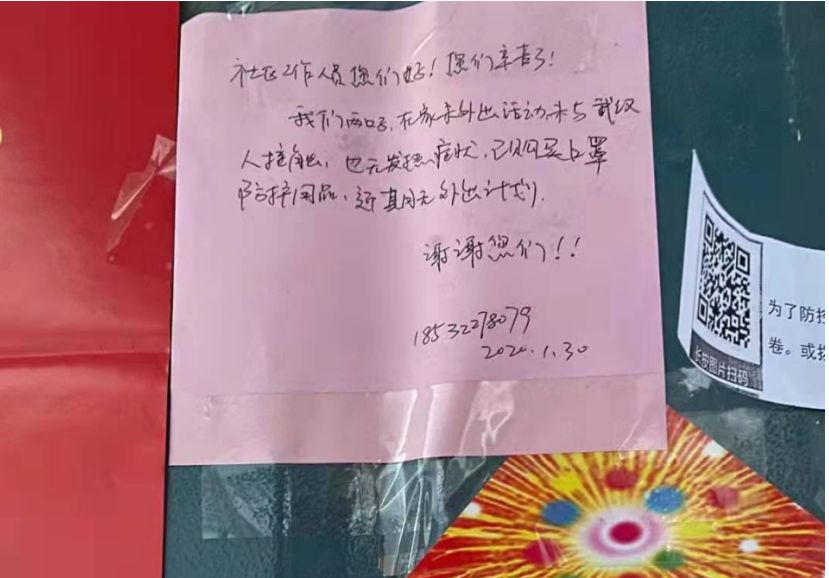 社区工作人员您们好！您们辛苦了！
我们两口, 在家未外出活动, 未与武汉
人接触, 也无发热症状, 已购买口罩
防护用品, 近期内无外出计划.
谢谢您们！！
18532278079
2020.1.30
长按图片扫码
为了防控
卷。或拨